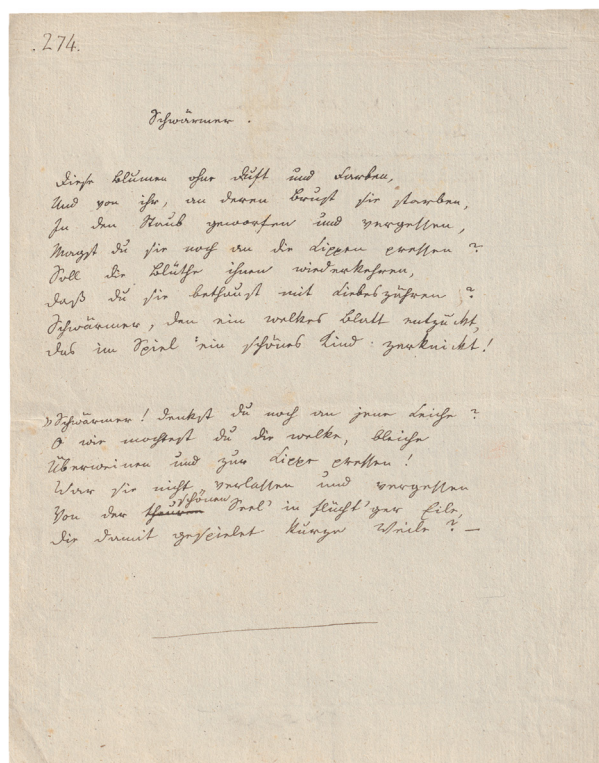 .274.
Schwärmer.
Diese Blumen ohne Duft und Farben,
Und von ihr, an deren Brust sie starben,
In den Staub geworfen und vergessen,
Magst du sie noch an die Lippen pressen?
Soll die Blüthe ihnen wiederkehren,
daß du sie bethaust mit Liebeszähren?
Schwärmer, den ein welkes Blatt entzückt,
das im Spiel ein schönes Kind zerknickt!
Schwärmer! denkst du noch an jene Leiche?
O wie mochtest du die welke, bleiche
Überweinen und zur Lippe pressen!
War sie nicht verlassen und vergessen
schönen
Von der theuren Seel' in flücht'ger Eile,
die damit gespielet kurze Weile? —